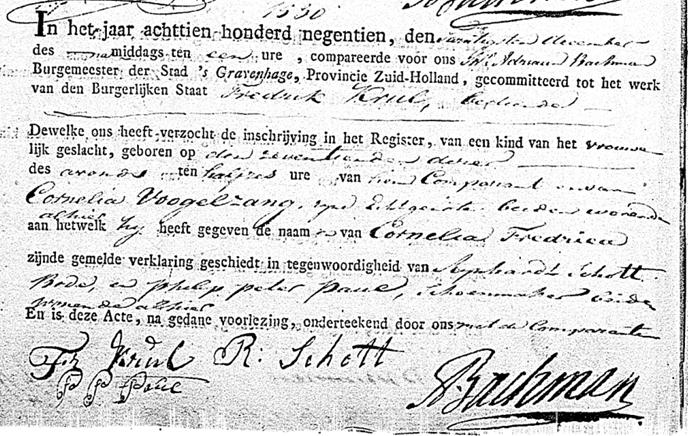 1530
In het jaar achttien honderd negentien, den twintigsten december
des namiddags ten een ure, compareerde voor ons Mr. Adriaan Bachman
Burgemeester der Stad 's Gravenhage, Provincie Zuid-Holland, gecommitteerd tot het werk
van den Burgerlijken Staat Fredrik Krul, bediende
Dewelke ons heeft verzocht de inschrijving in het Register, van een kind van het vrouwe
lijk geslacht, geboren op den zeventienden dezer
des avonds ten half zes ure van hem Comparant en van
Cornelia Voogelzang, zyne Echtgenote beiden wonende
alhier
aan hetwelk hy heeft gegeven de naam en van Cornelia Fredrica
zijnde gemelde verklaring geschiedt in tegenwoordigheid van Schott
Bode, en Philip Peter Paul, Schoenmaker beide
wonende alhier
En is deze Acte, na gedane voorlezing, onderteekend door ons met de Comparanten
Fr Krul R: Schott
P P Paul
ABachman